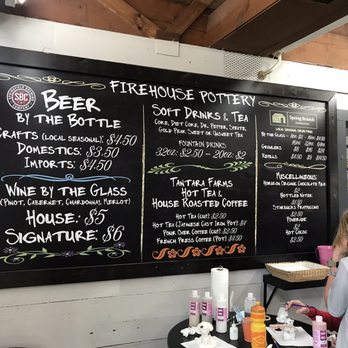 FIREHOUSE POTTERY
SBC
BEER
BY THE BOTTLE
CRAFTS (LOCAL SEASONAL): $4.50
DOMESTICS: $3.50
IMPORTS: $4.50
WINE BY THE GLASS
(PINOT, CABERNET, CHARDONNAY, MERLOT)
HOUSE: $5
SIGNATURE: $6
SOFT DRINKS & TEA
COKE, DIET COKE, DR. PEPPER, SPRITE,
GOLD PEAK SWEET OR UNSWEET TEA
FOUNTAIN DRINKS
32oz: $2.50 ~ 20oz: $2
TANTARA FARMS
HOT TEA &
HOUSE ROASTED COFFEE
HOT TEA (CUP) $2.50
HOT TEA (JAPANESE CAST IRON POT) $4
POUR OVER COFFEE (CUP) $2.50
FRENCH PRESS COFFEE (POT) $4.50
Spring Branch
BY THE GLASS
GROWLERS
REFILLS
MISCELLANEOUS:
HORIZON ORGANIC CHOCOLATE MILK
$2
BOTTLED WATER
$2
STARBUCKS FRAPPUCCINO
$2.50
POWERADE
$2
HOT COCOA
$2